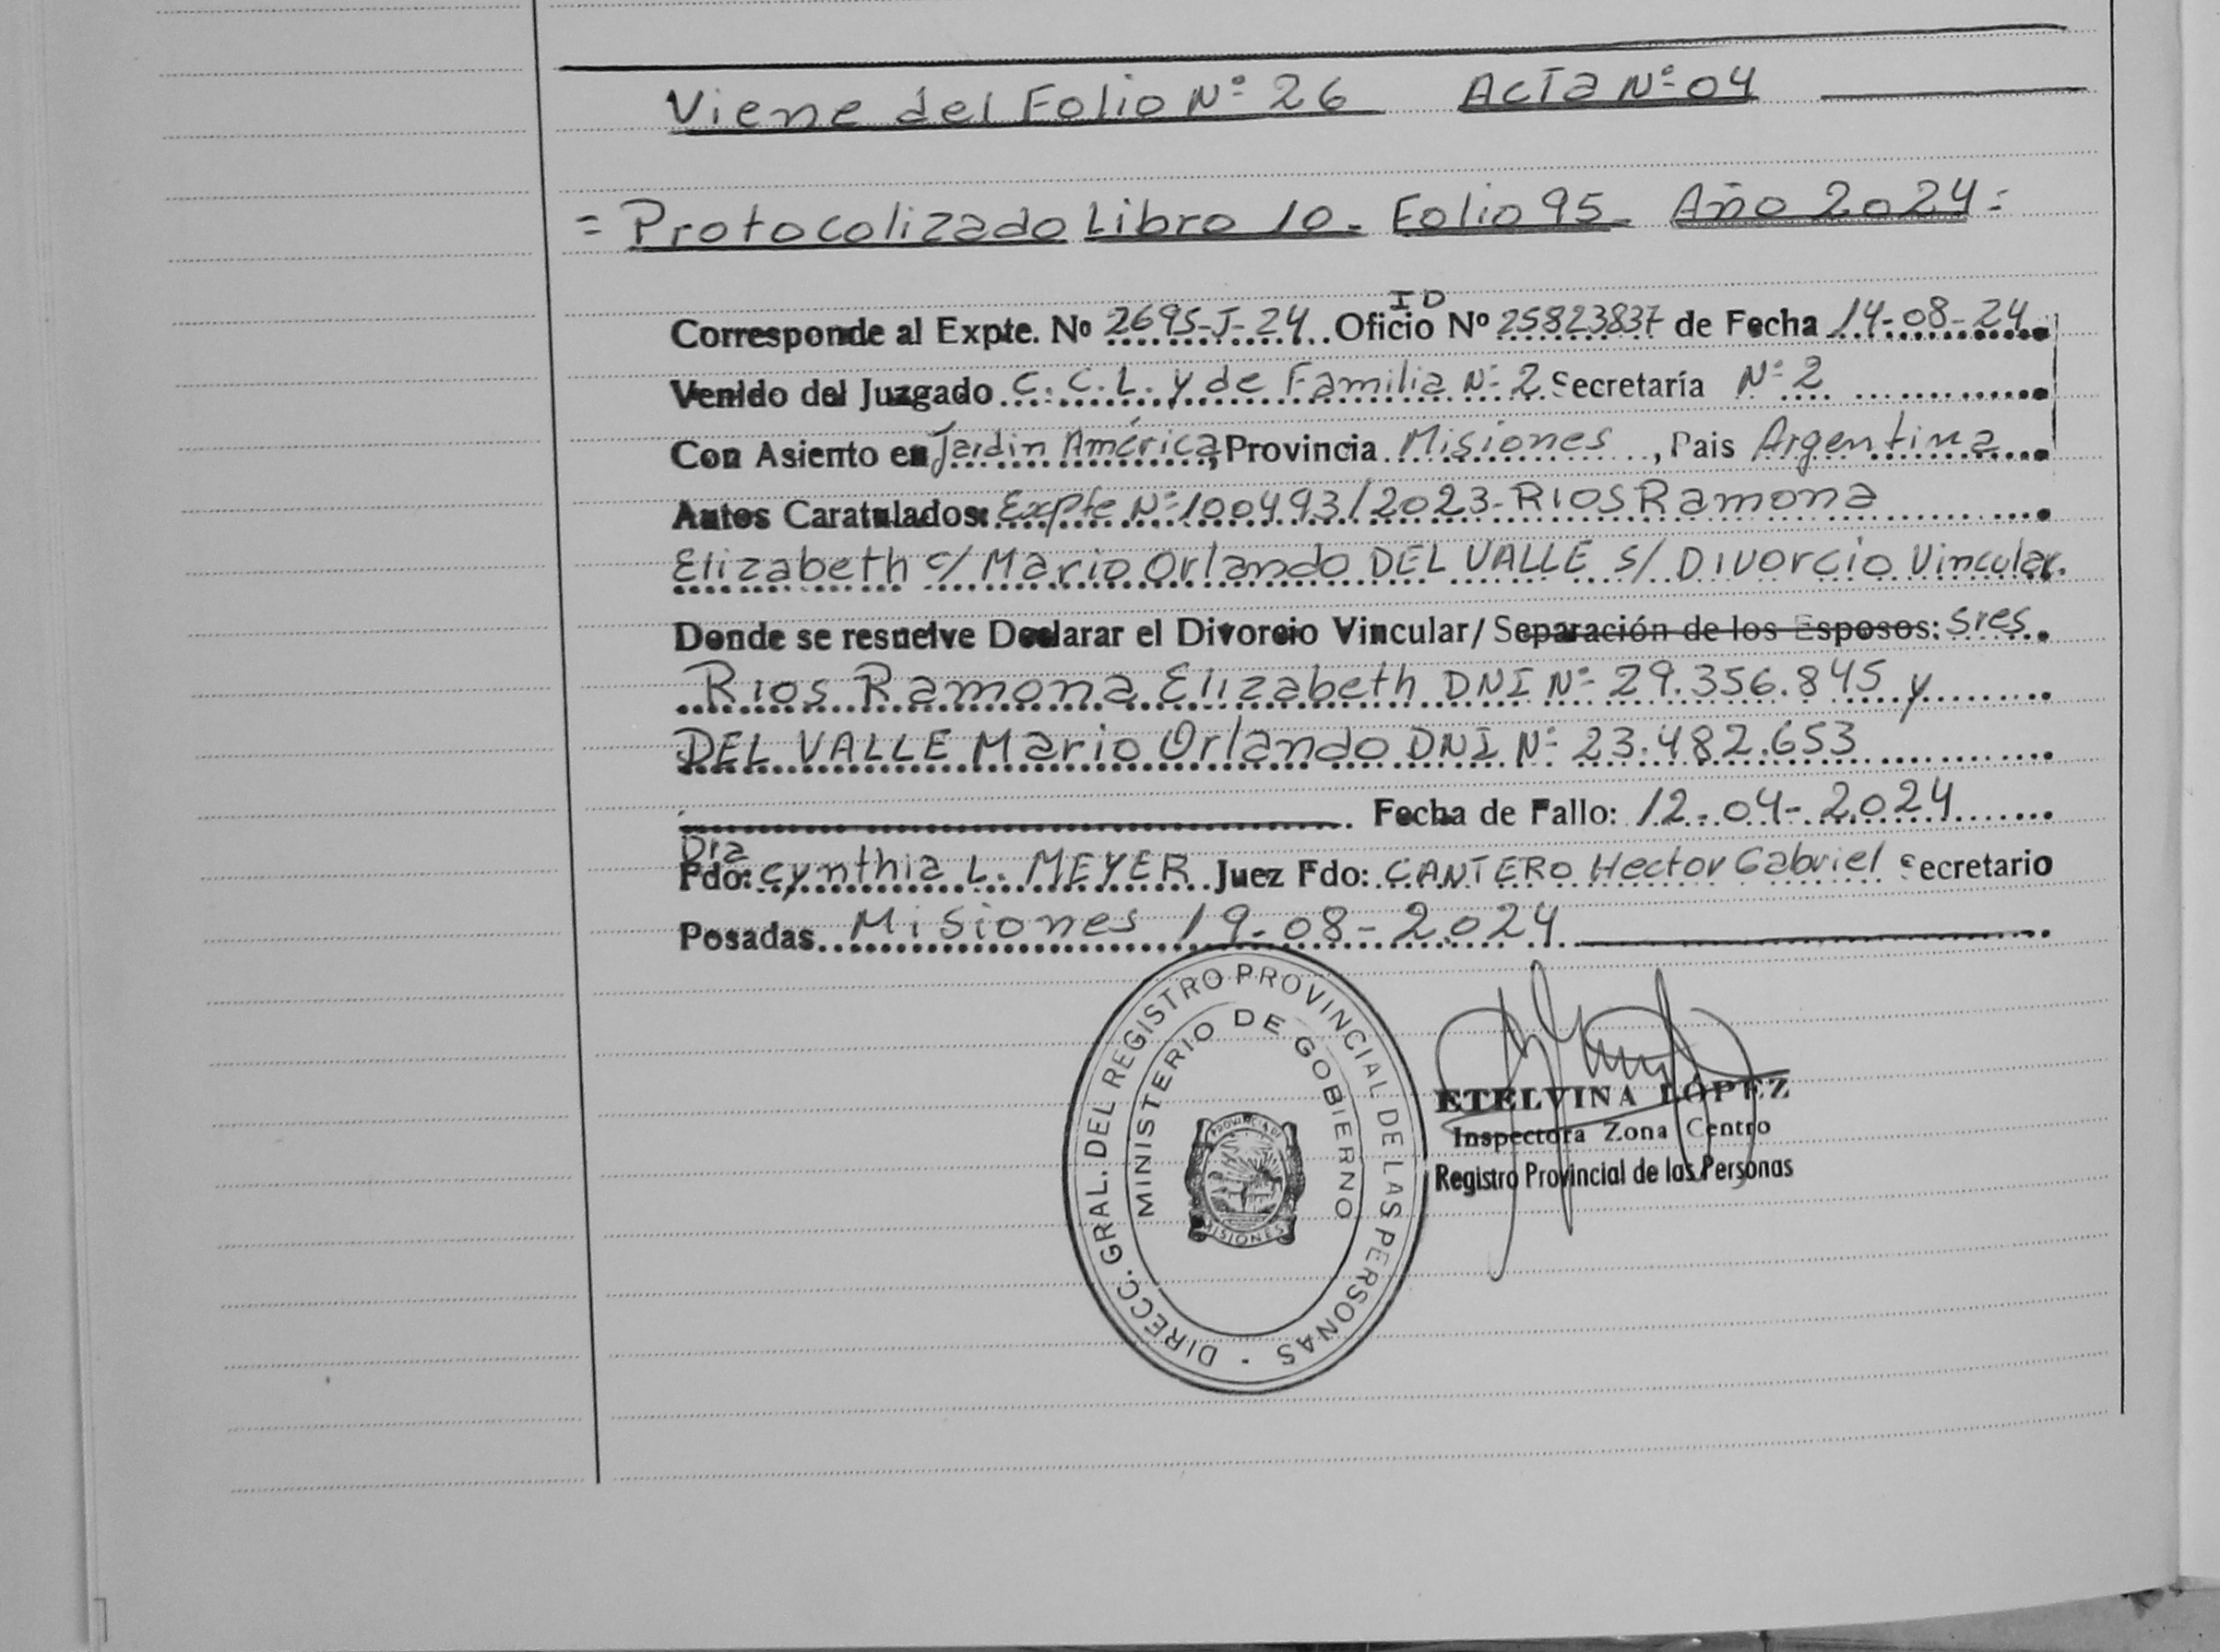 Viene del Folio Nº 26 Acta Nº 04
= Protocolizado Libro 10. Folio 95. Año 2024=
ID
Corresponde al Expte. Nº 2695-J-24 Oficio Nº 25823837 de Fecha 14-08-24
Venido del Juzgado C. C. L. y de Familia Nº 2 Secretaría Nº 2
Con Asiento en Jardin América, Provincia Misiones, Pais Argentina
Autos Caratulados: Expte Nº 100493/2023- RIOS Ramona
Elizabeth c/ Mario Orlando DEL VALLE s/ Divorcio Vincular.
Donde se resuelve Declarar el Divorcio Vincular/Separación de los Esposos: sres
Rios Ramona Elizabeth DNI Nº 29.356.845 y
DEL VALLE Mario Orlando DNI Nº 23.482.653
Fecha de Fallo: 12-04-2024
Dra
Fdo: Cynthia L. MEYER Juez Fdo: CANTERO Hector Gabriel Secretario
Posadas Misiones 19-08-2024
DIRECC. GRAL. DEL REGISTRO PROVINCIAL DE LAS PERSONAS -
MINISTERIO DE GOBIERNO
PROVINCIA DE
MISIONES
ETELVINA LÓPEZ
Inspectora Zona Centro
Registro Provincial de las Personas